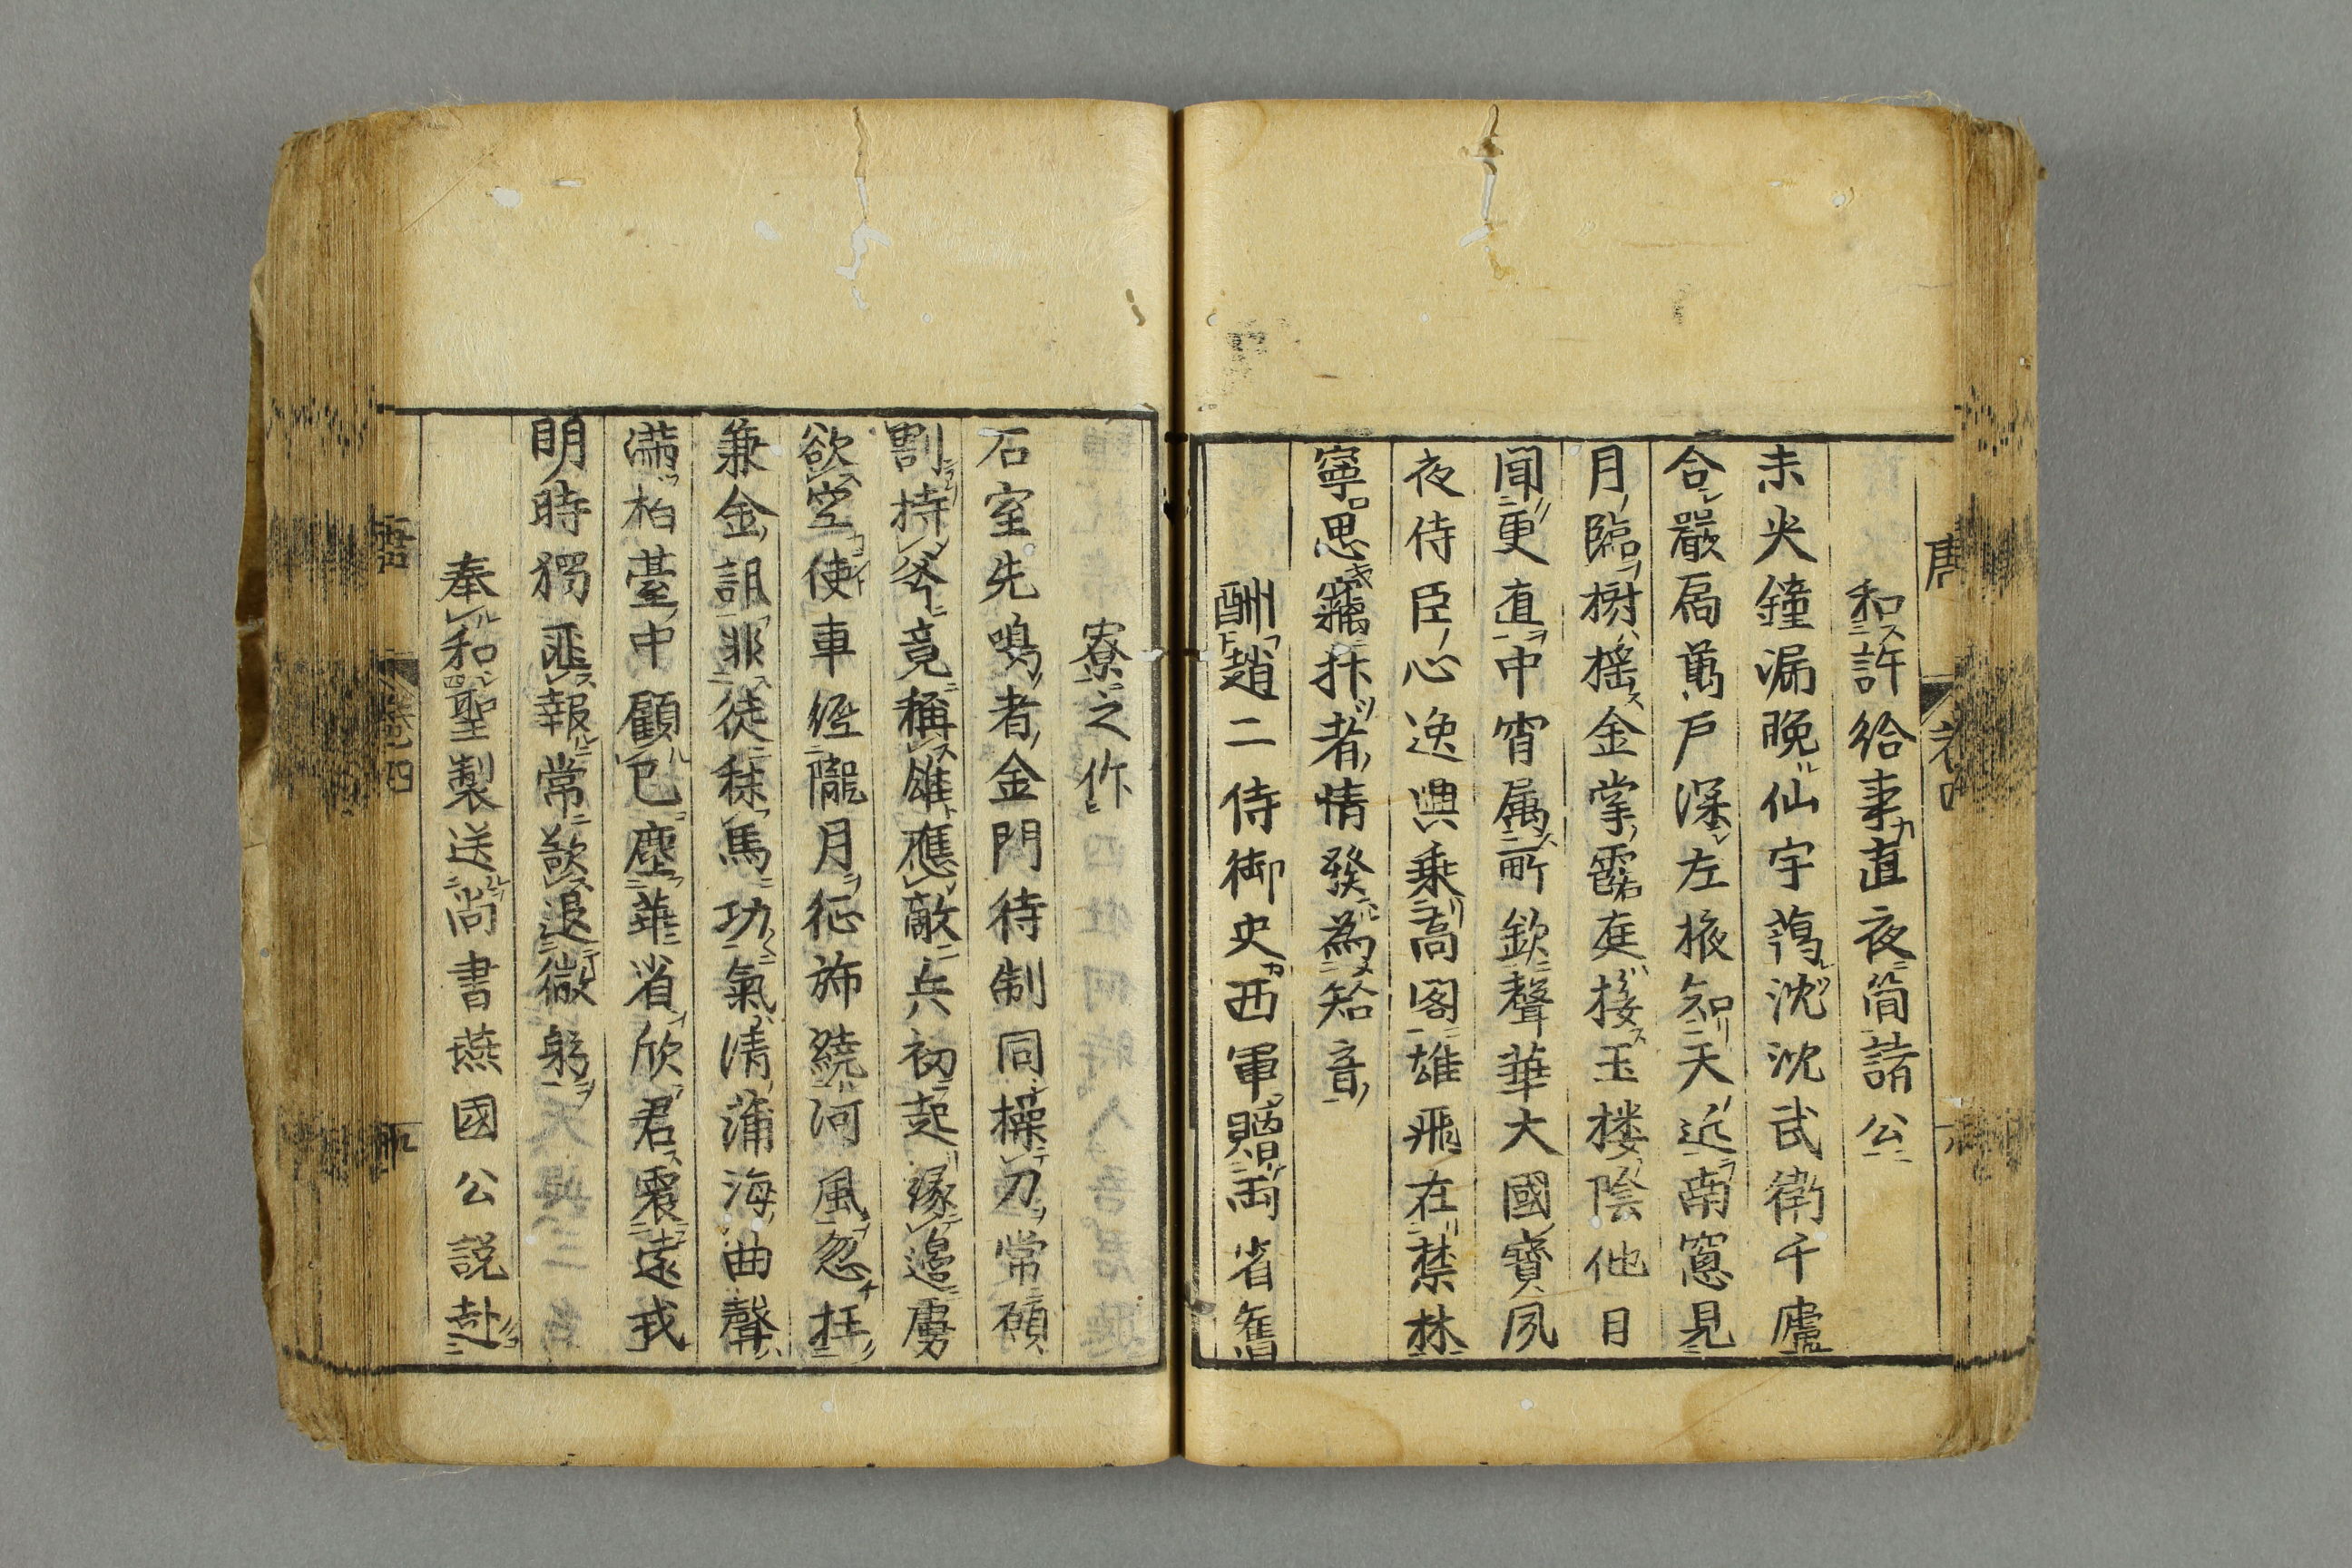 和許給事直夜簡諸公
未央鐘漏晚仙宇藹沈沈武衛千廬
合嚴扃萬戸深左掖知天近南窓見
月臨樹揺金掌露庭接玉楼陰他日
聞更直中宵属所欽聲華大國寶夙
夜侍臣心逸興乗高閣雄飛在禁林
寧思竊抃者情發為知音
酬趙二侍御史西軍贈両省舊
寮之作
石室先鳴者金門待制同操刀常願
割持斧竟稱雄應敵兵初起縁邉虜
欲空使車経隴月征旆繞河風忽枉
兼金訊非徒秣馬功氣清蒲海曲聲
滿柏臺中顧己塵華省欣君震遠戎
明時獨匪報常欲退微躬
奉和聖製送尚書燕國公説赴